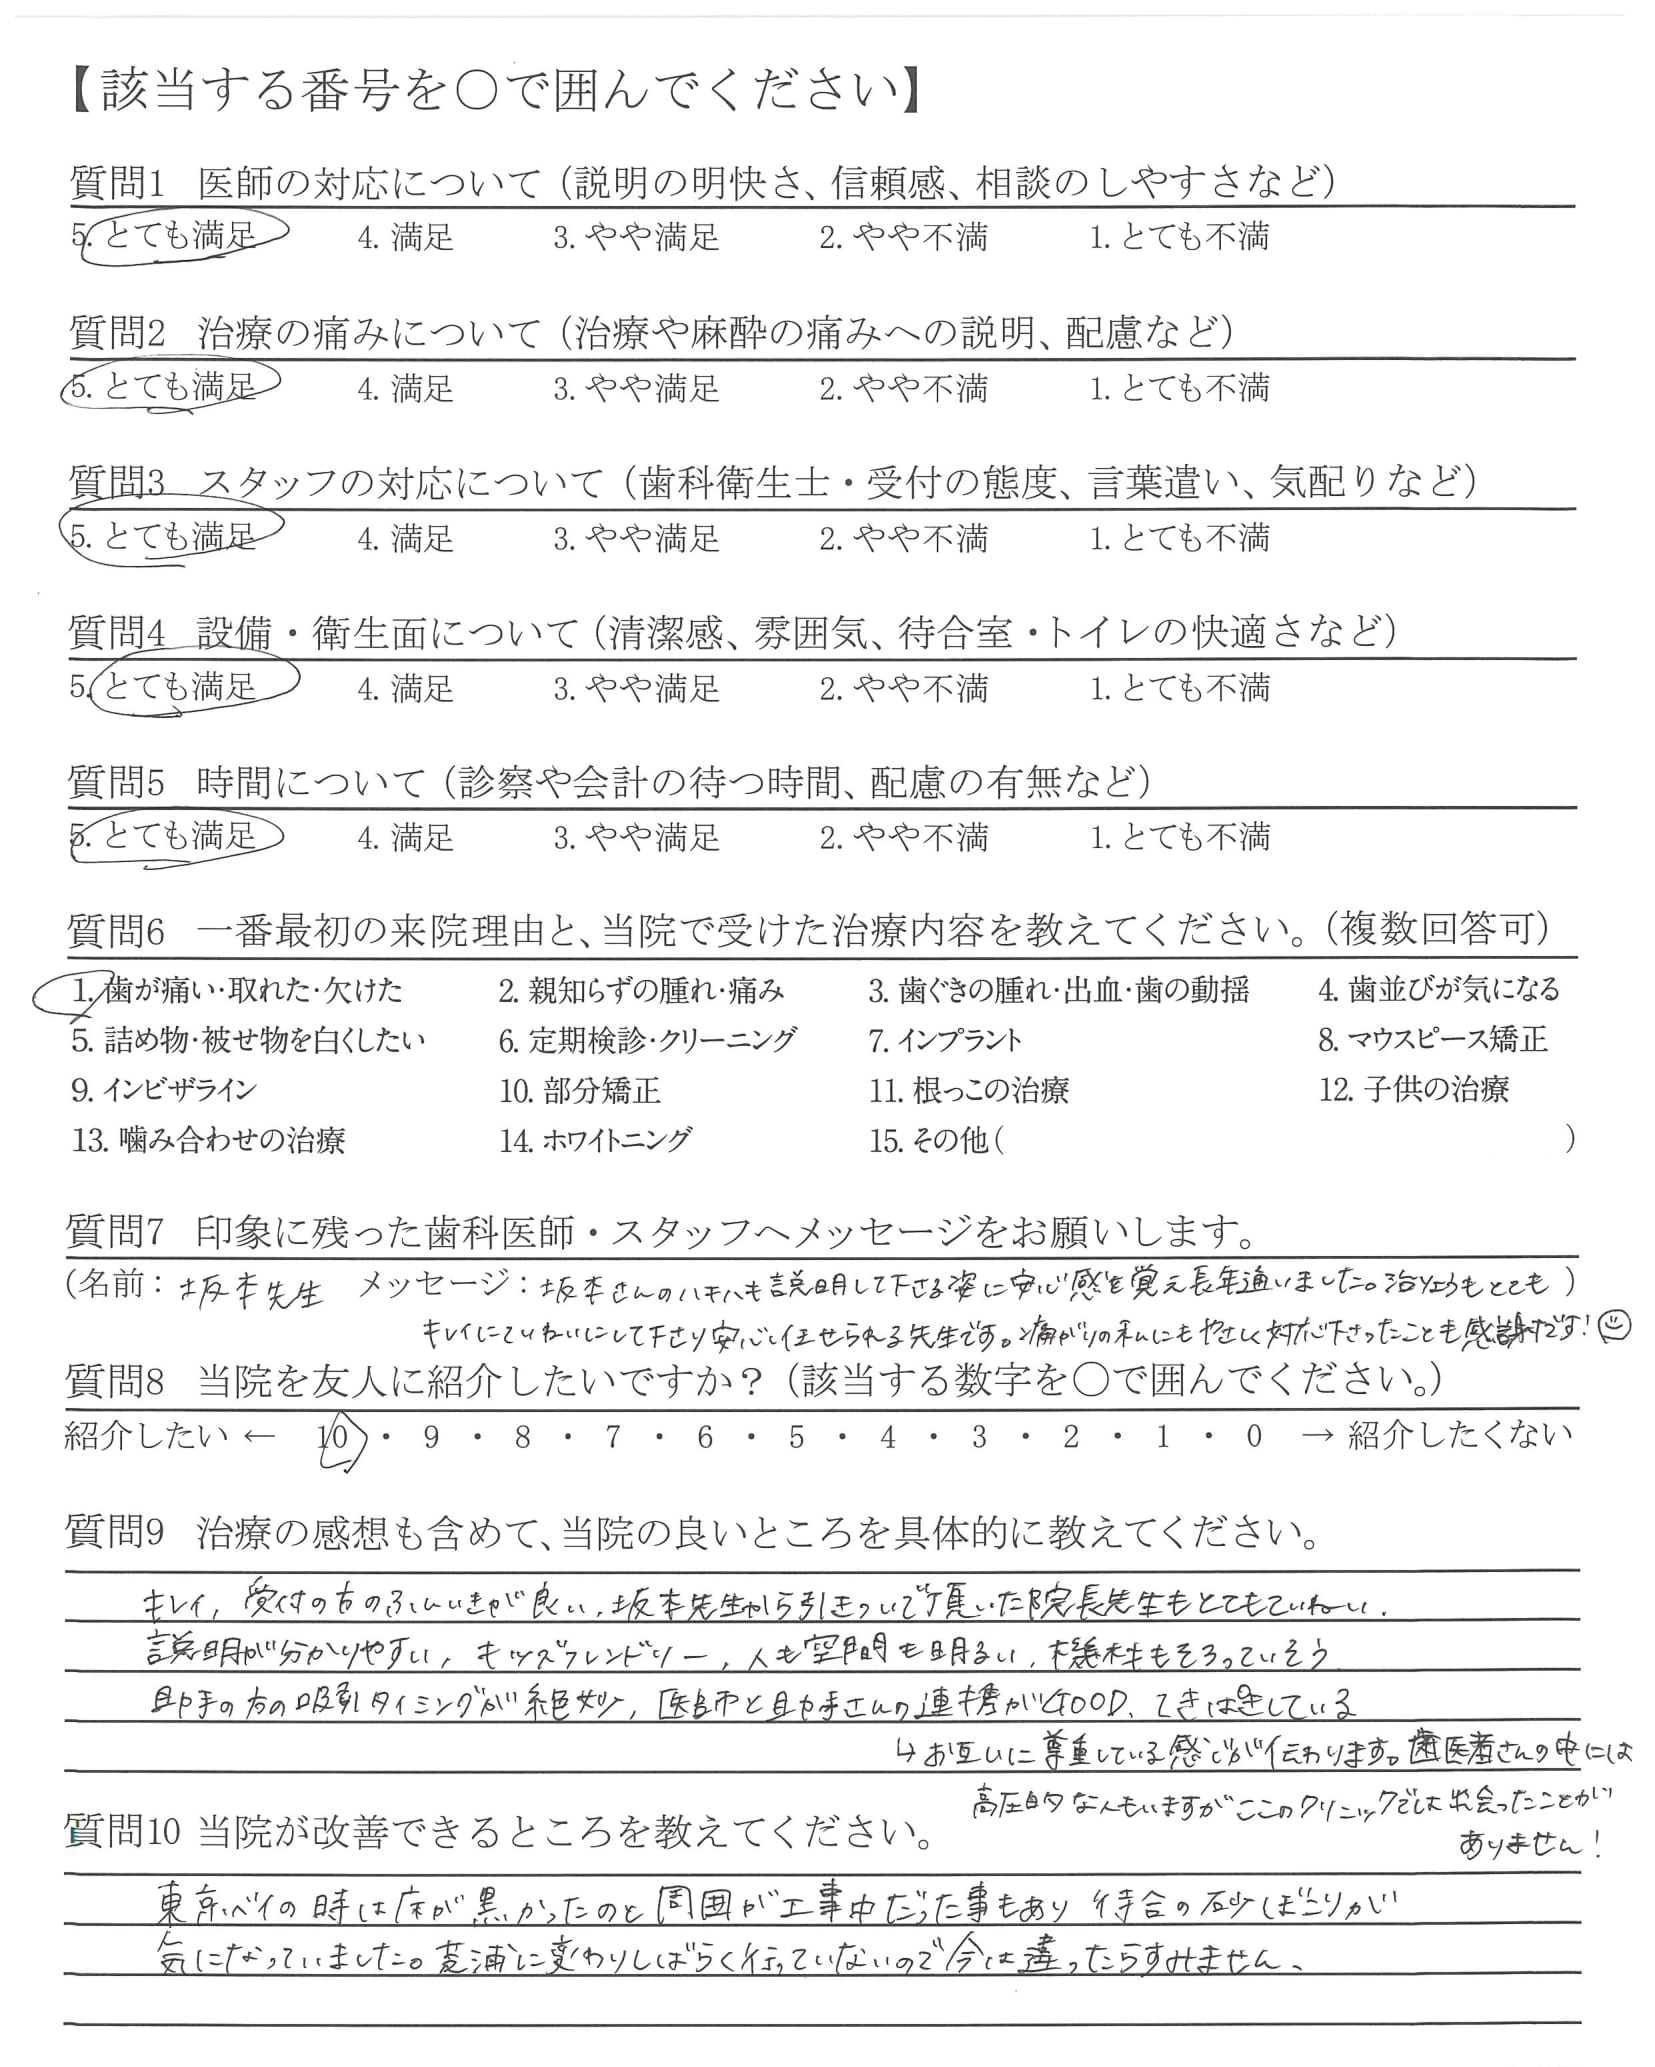 【該当する番号を○で囲んでください】
質問1 医師の対応について（説明の明快さ、信頼感、相談のしやすさなど）
5. とても満足 4. 満足 3. やや満足 2. やや不満 1. とても不満
質問2 治療の痛みについて（治療や麻酔の痛みへの説明、配慮など）
5. とても満足 4. 満足 3. やや満足 2. やや不満 1. とても不満
質問3 スタッフの対応について（歯科衛生士・受付の態度、言葉遣い、気配りなど）
5. とても満足 4. 満足 3. やや満足 2. やや不満 1. とても不満
質問4 設備・衛生面について（清潔感、雰囲気、待合室・トイレの快適さなど）
5. とても満足 4. 満足 3. やや満足 2. やや不満 1. とても不満
質問5 時間について（診察や会計の待つ時間、配慮の有無など）
5. とても満足 4. 満足 3. やや満足 2. やや不満 1. とても不満
質問6 一番最初の来院理由と、当院で受けた治療内容を教えてください。（複数回答可）
1. 歯が痛い・取れた・欠けた 2. 親知らずの腫れ・痛み 3. 歯ぐきの腫れ・出血・歯の動揺 4. 歯並びが気になる
5. 詰め物・被せ物を白くしたい 6. 定期検診・クリーニング 7. インプラント 8. マウスピース矯正
9. インビザライン 10. 部分矯正 11. 根っこの治療 12. 子供の治療
13. 噛み合わせの治療 14. ホワイトニング 15. その他（ ）
質問7 印象に残った歯科医師・スタッフへメッセージをお願いします。
（名前：坂本先生 メッセージ：坂本さんのハキハキ説明して下さる姿に安心感を覚え長年通いました。治りょうもとても）
キレイにていねいにして下さり安心し任せられる先生です。痛がりの私にもやさしく対応下さったことも感謝です！
質問8 当院を友人に紹介したいですか？（該当する数字を○で囲んでください。）
紹介したい ← 10 ・ 9 ・ 8 ・ 7 ・ 6 ・ 5 ・ 4 ・ 3 ・ 2 ・ 1 ・ 0 → 紹介したくない
質問9 治療の感想も含めて、当院の良いところを具体的に教えてください。
キレイ, 受付の方のふんいきが良い, 坂本先生から引きついで頂いた院長先生もとてもていねい,
説明が分かりやすい, キッズフレンドリー, 人も空間も明るい, 機材もそろっていそう
助手の方の吸引タイミングが絶妙, 医師と助手さんの連携がGOOD、てきぱきしている
↳ お互いに尊重している感じが伝わります。歯医者さんの中には
高圧的な人もいますがここのクリニックでは出会ったことが
ありません！
質問10 当院が改善できるところを教えてください。
東京ベイの時は床が黒かったのと周囲が工事中だった事もあり 待合の砂ぼこりが
気になっていました。芝浦に変わりしばらく行っていないので今は違ったらすみません、